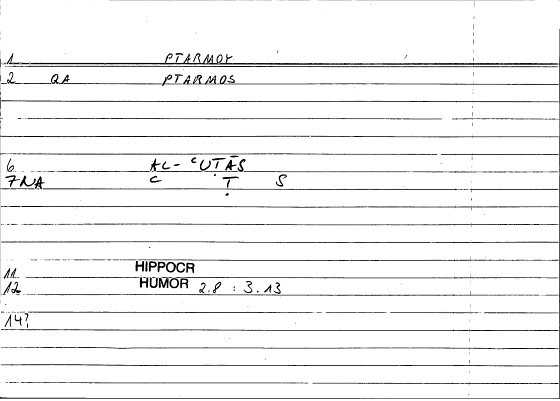 1 PTARMOY
2 QA PTARMOS
6 AL- ʿUṬĀS
7 NA ʿ Ṭ S
11 HIPPOCR
12 HUMOR 2.8 : 3.13
14?